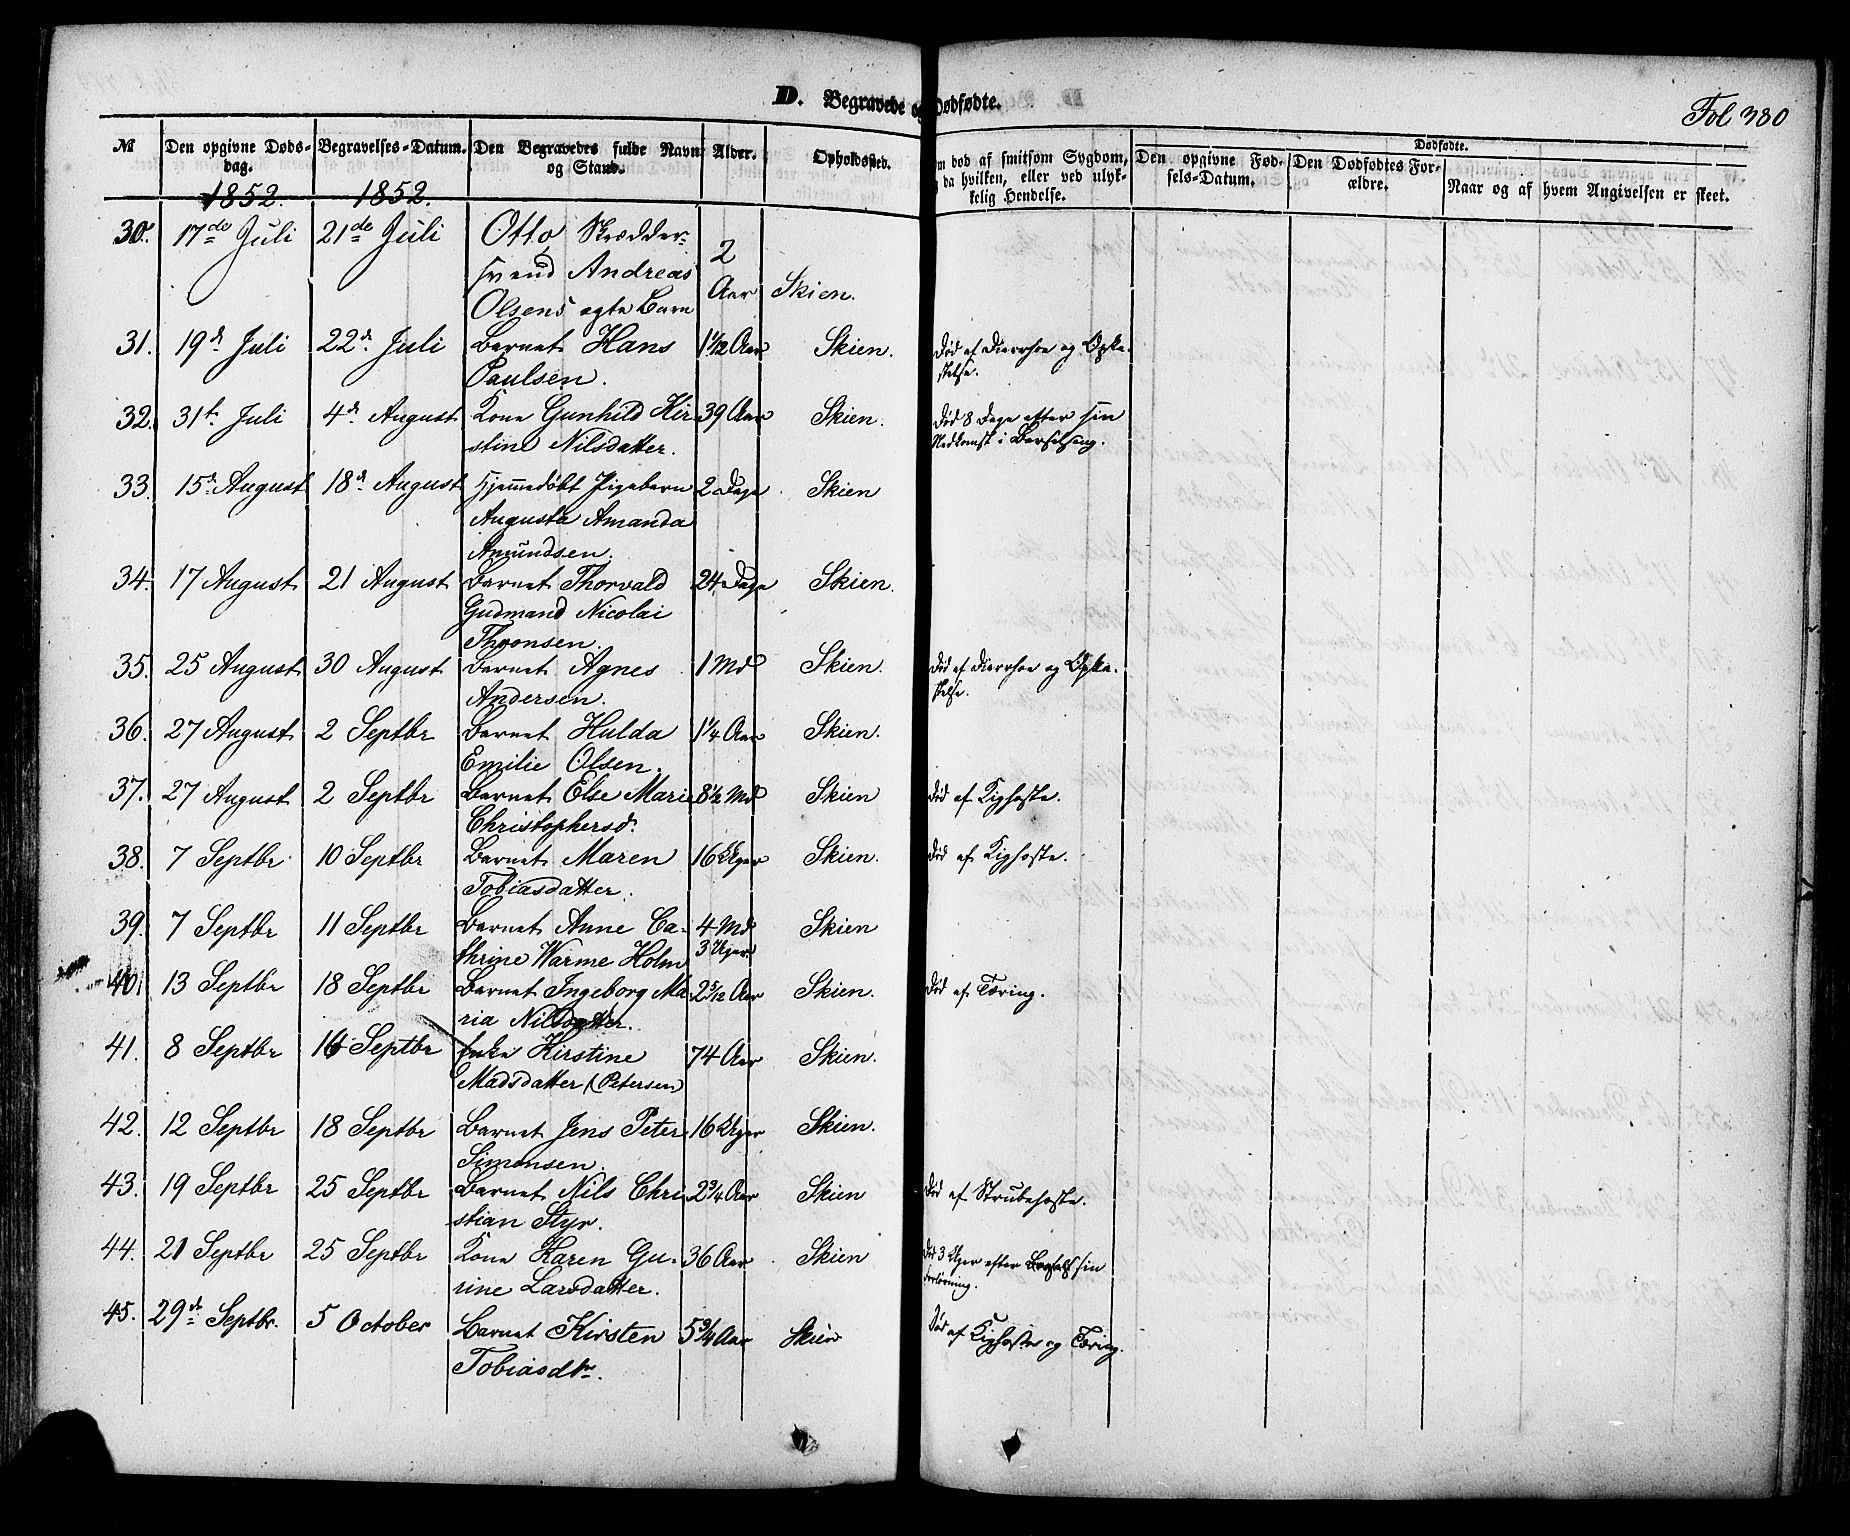 D. Begravede og Dødfødte.
Fol 380
№ Den opgivne Døds-dag. Begravelses-Datum. Den Begravedes fulde Navn og Stand. Alder. Opholdssted. Om død af smitsom Sygdom, og da hvilken, eller ved ulykkelig Hendelse. Den opgivne Fødsels-Datum. Den Dødfødtes Forældre. Dødfødte. Naar og af hvem Angivelsen er skeet.
1852. 1852.
30. 17de Juli 21de Juli Otto Skrædder-
svend Andreas 2
Olsens ægte Barn Aar Skien.
31. 19d. Juli 22d. Juli Barnet Hans 1 1/12 Aar Skien. Død af Diarrhoe og Opka-
Paulsen. stelse.
32. 31t. Juli 4d. August Kone Gunhild Kir- 39 Aar Skien. Død 8 Dage efter sin
stine Nilsdatter. Nedkomst i Barselseng.
33. 15d. August 18d. August Hjemmedøbt Pigebarn 2 Dage Skien
Augusta Amanda
Amundsen.
34. 17 August 21 August Barnet Thorvald 24 Dage Skien.
Gudmand Nicolai
Thronsen.
35. 25 August 30 August Barnet Agnes 1 Md Skien. Død af Diarrhoe og Opka-
Andersen. stelse.
36. 27 August 2 Septbr Barnet Hulda 1 1/4 Aar Skien.
Emilie Olsen.
37. 27 August 2 Septbr Barnet Else Marie 8 1/2 Md Skien Død af Kighoste.
Christophersd.
38. 7 Septbr 10 Septbr Barnet Maren 16 Uger Skien. Død af Kighoste.
Tobiasdatter.
39. 7 Septbr 11 Septbr Barnet Anne Ca- 4 Md Skien
thrine Warme Holm 3 Uger
40. 13 Septbr 18 Septbr Barnet Ingeborg Ma- 2 5/12 Aar Skien. Død af Tæring.
ria Nilsdatter.
41. 8 Septbr 16 Septbr Enke Kirstine 74 Aar Skien.
Madsdatter (Petersen)
42. 12 Septbr 18 Septbr Barnet Jens Peter 16 Uger Skien.
Simonsen.
43. 19 Septbr 25 Septbr Barnet Nils Chri 2 3/4 Aar Skien Død af Strubehoste.
stian Styr.
44. 21 Septbr 25 Septbr Kone Karen Gu- 36 Aar Skien Død 3 Uger efter sin
rine Larsdatter. Forløsning.
45. 29d. Septbr. 5 October Barnet Kirsten 5 3/4 Aar Skien Død af Kighoste og Tæring.
Tobiasdtr.